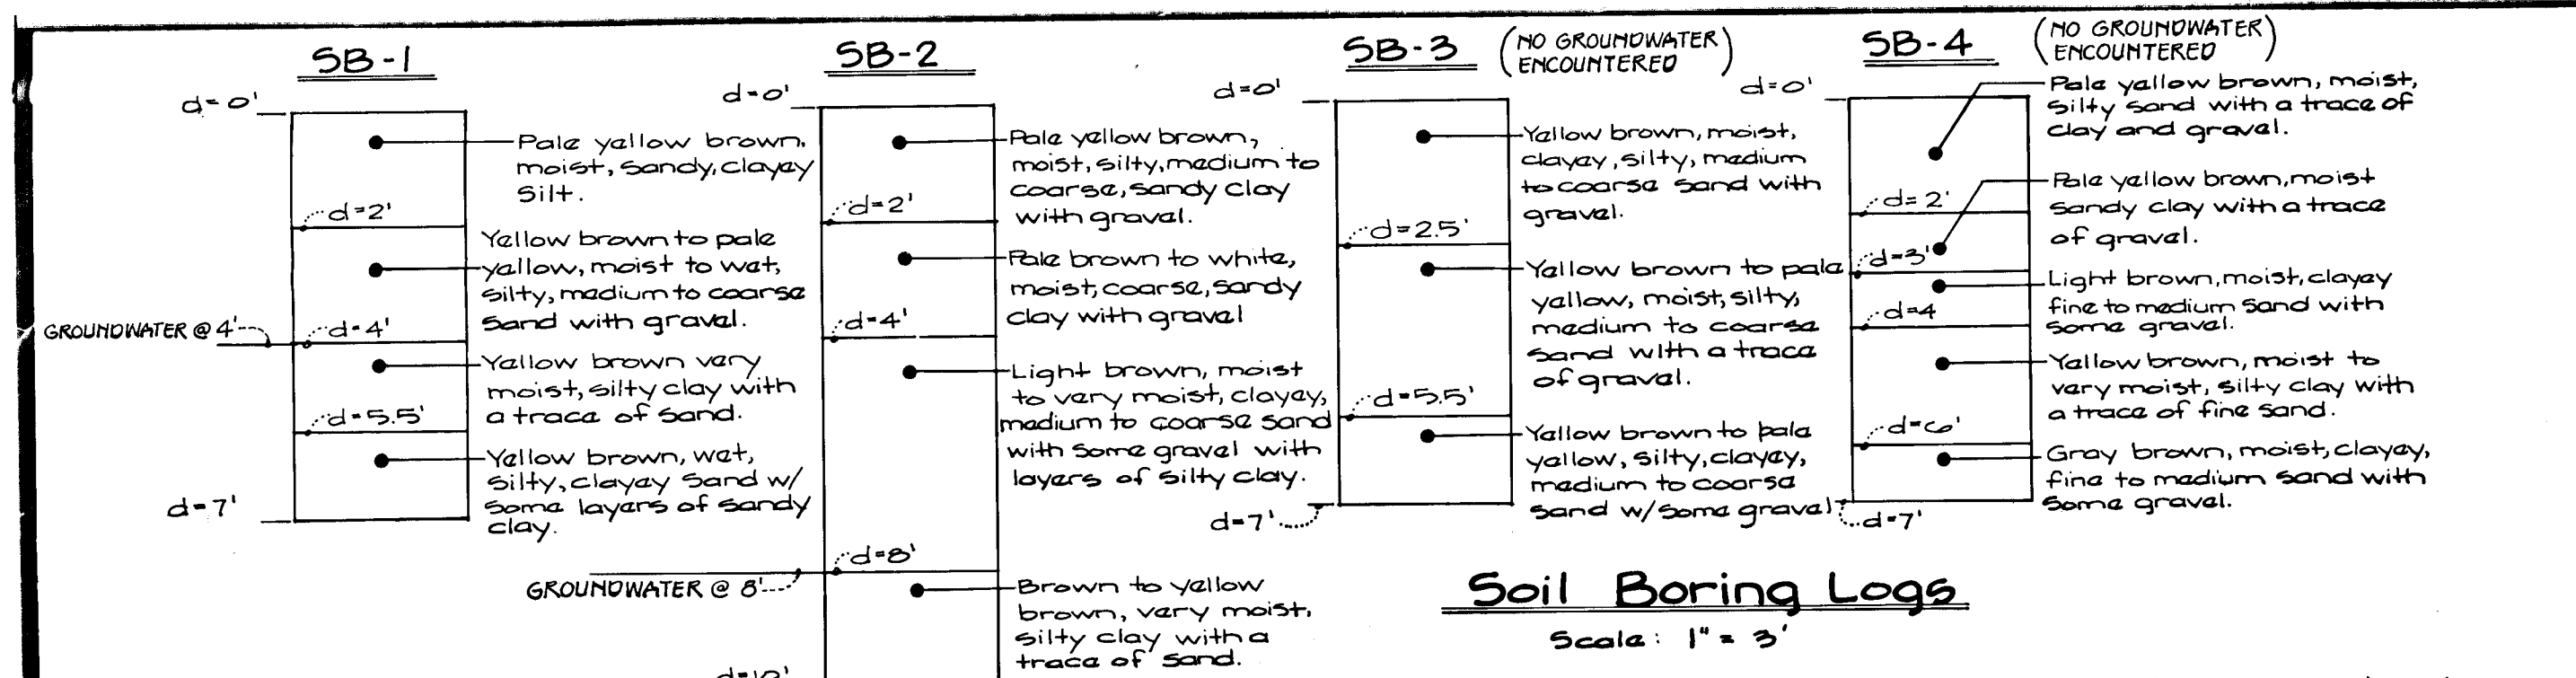 SB-1
d=0'
Pale yellow brown,
moist, sandy, clayey
silt.
d=2'
Yellow brown to pale
yellow, moist to wet,
silty, medium to coarse
sand with gravel.
GROUNDWATER @ 4'
d=4'
Yellow brown very
moist, silty clay with
a trace of sand.
d=5.5'
Yellow brown, wet,
silty, clayey sand w/
some layers of sandy
clay.
d=7'
SB-2
d=0'
Pale yellow brown,
moist, silty, medium to
coarse, sandy clay
with gravel.
d=2'
Pale brown to white,
moist, coarse, sandy
clay with gravel
d=4'
Light brown, moist
to very moist, clayey,
medium to coarse sand
with some gravel with
layers of silty clay.
d=8'
GROUNDWATER @ 8'
Brown to yellow
brown, very moist,
silty clay with a
trace of sand.
SB-3
(NO GROUNDWATER
ENCOUNTERED)
d=0'
Yellow brown, moist,
clayey, silty, medium
to coarse sand with
gravel.
d=2.5'
Yellow brown to pale
yellow, moist, silty,
medium to coarse
sand with a trace
of gravel.
d=5.5'
Yellow brown to pale
yellow, silty, clayey,
medium to coarse
sand w/some gravel
d=7'
SB-4
(NO GROUNDWATER
ENCOUNTERED)
d=0'
Pale yellow brown, moist,
silty sand with a trace of
clay and gravel.
d=2'
Pale yellow brown, moist
sandy clay with a trace
of gravel.
d=3'
Light brown, moist, clayey
fine to medium sand with
some gravel.
d=4
Yellow brown, moist to
very moist, silty clay with
a trace of fine sand.
d=6'
Gray brown, moist, clayey,
fine to medium sand with
some gravel.
d=7'
Soil Boring Logs
Scale: 1" = 3'